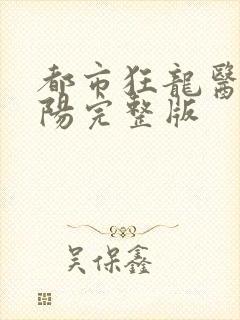 都市狂龍醫
陽完整版
吴保鑫